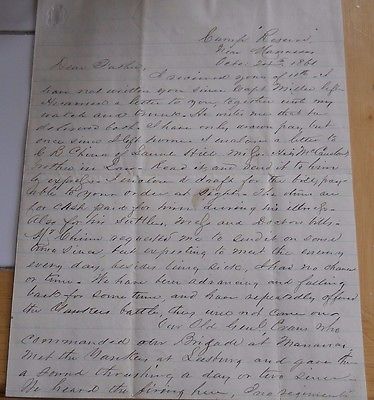 Camp "Reserve"
Near Manassas
Octo. 24th, 1861
Dear Father,
I received yours of 18th. I
have not written you since Capt Miller left
a letter to you, together with my
watch and trunk. He writes me that he
delivered both. I have only
once since I left home. I enclose a letter to
C. B. of Laurel Hill
mother in Law. Read it, and send it to him
by express. I enclose a draft for the bills, pay-
able to your order at Sight. The
has Cash paid for him during his illness.
Also for his Sutlers, Mess and Doctors bills.
Mr requested me to send it on some
time since, but expecting to meet the enemy
every day, besides being Sick, I had no chance
or time. We have been advancing and falling
back for some time, and have repeatedly offered
the battle, they will not come on.
Our Old Genl. Evans who
commanded our Brigade at Manassas
met the Yankees at Leesburg and gave them
a sound thrashing a day or two since
We heard the firing here, Two regiments